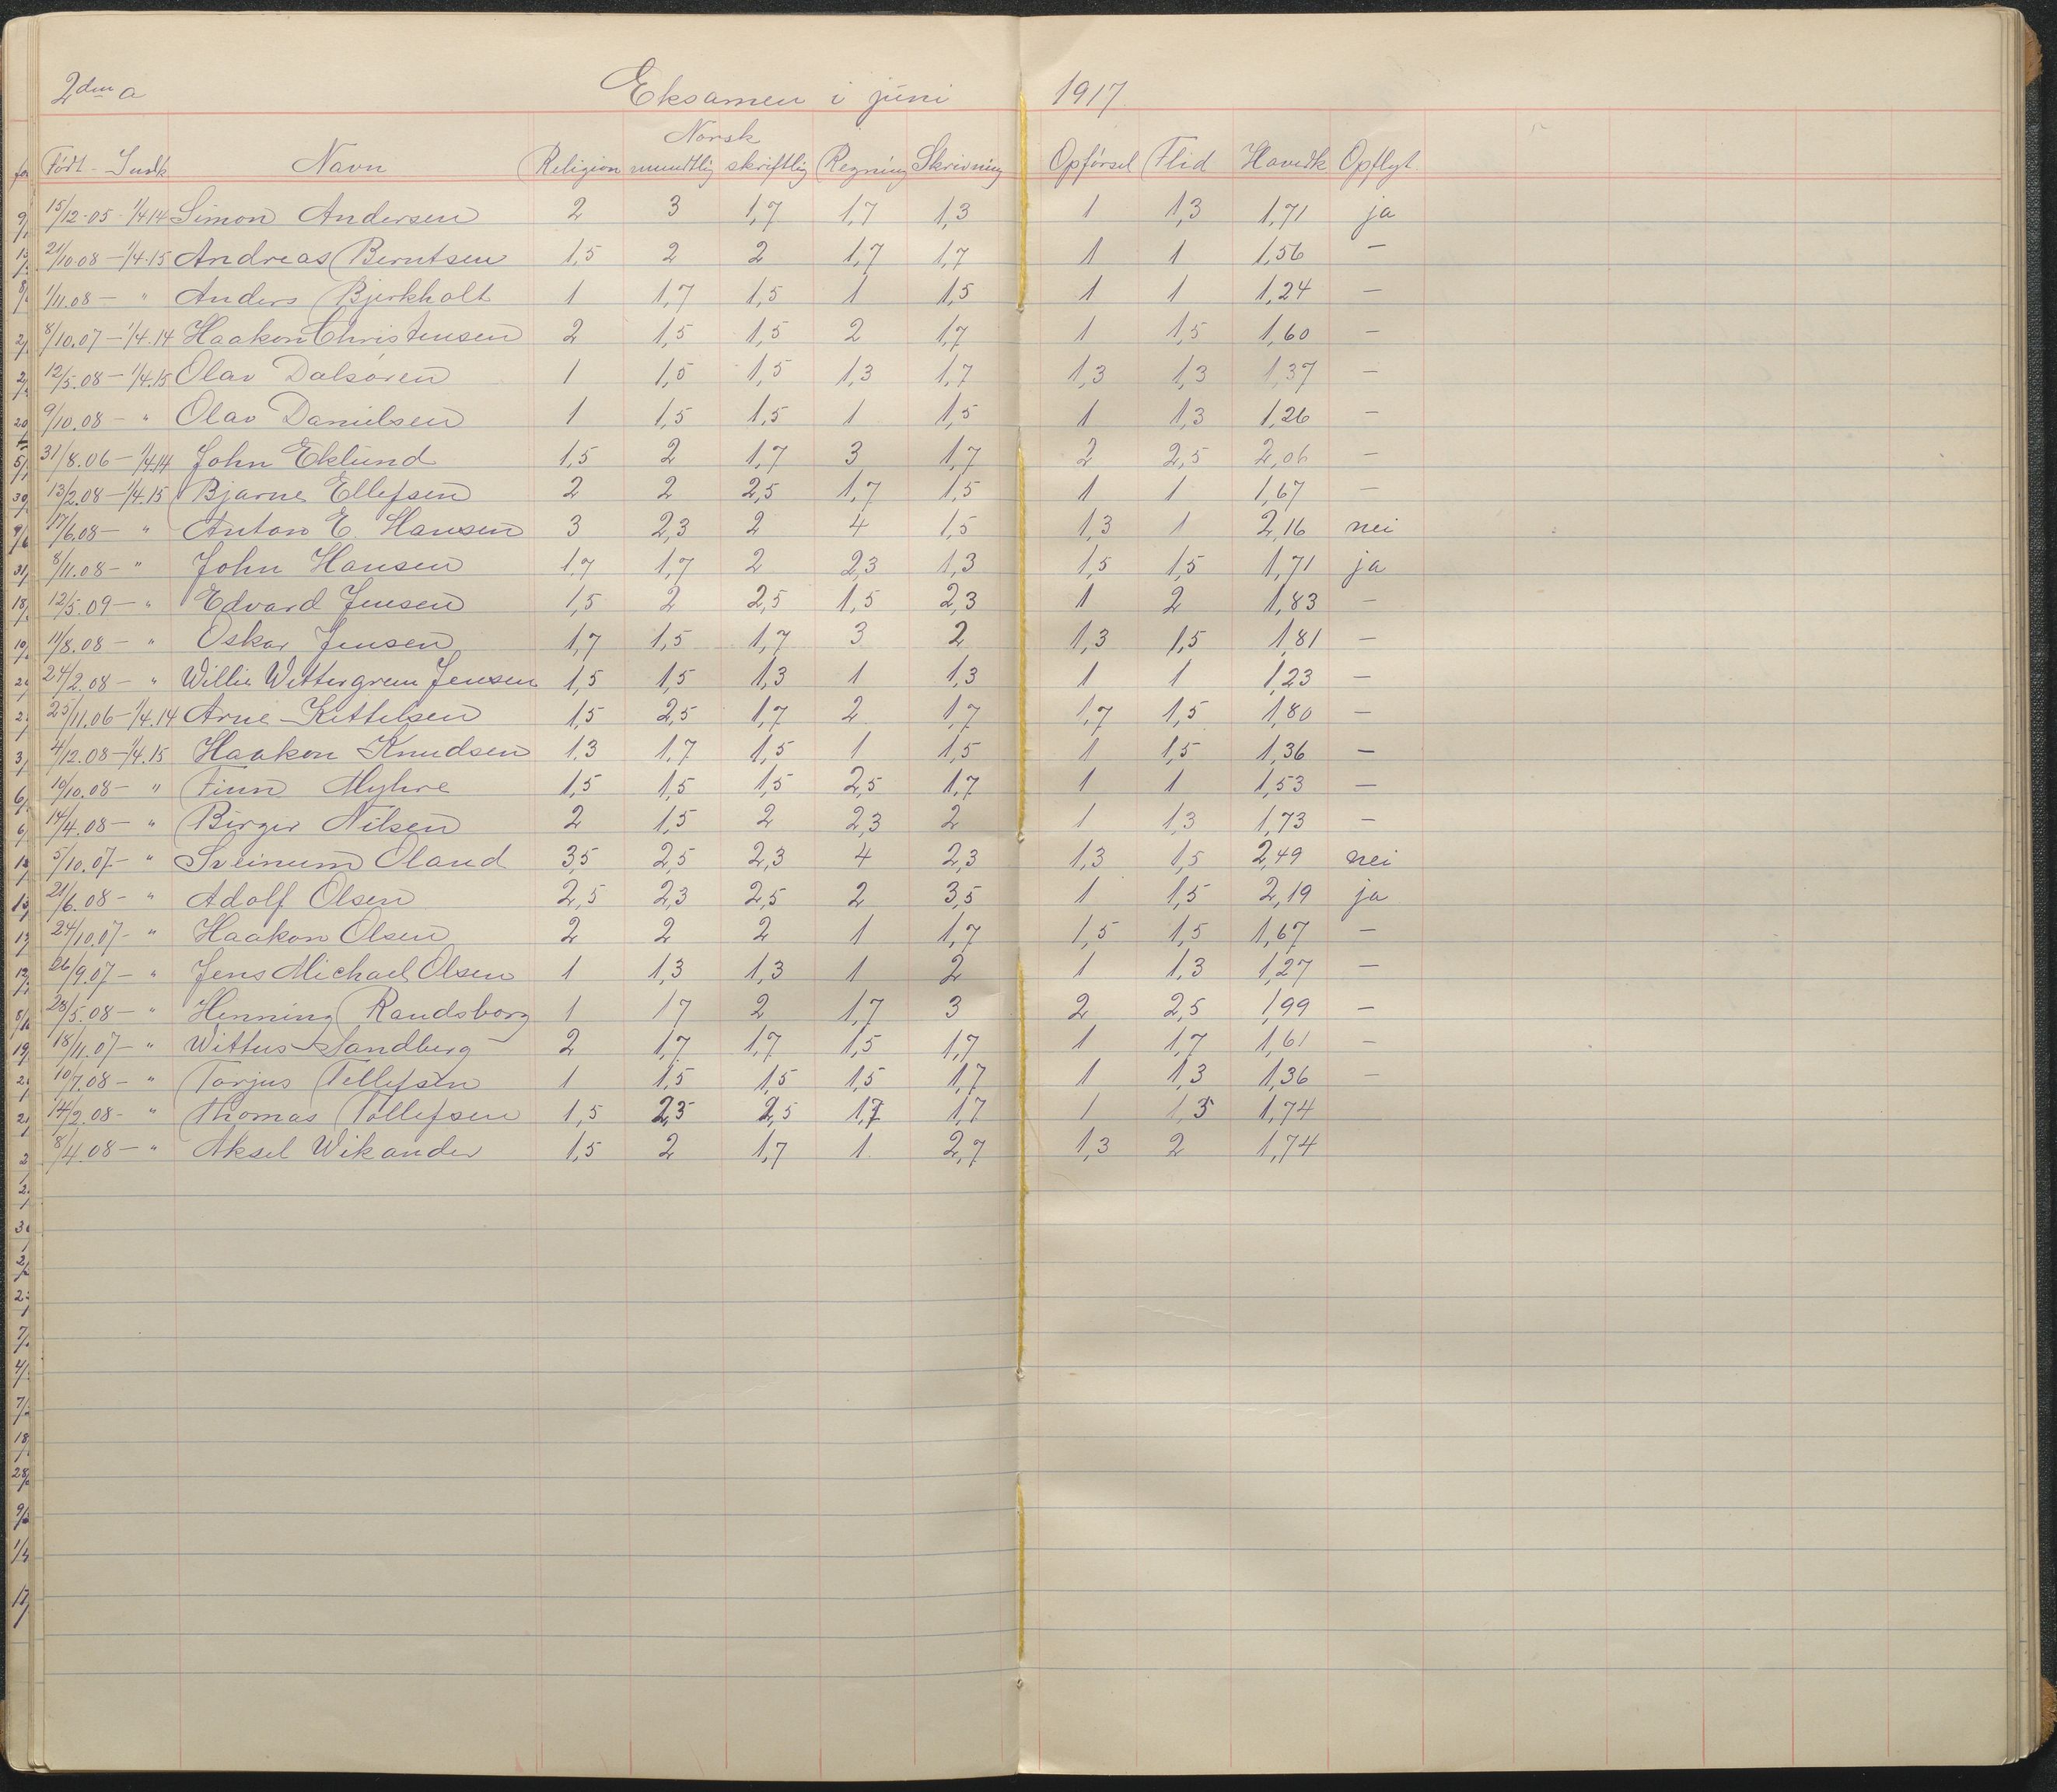 2den a Eksamen i juni 1917
Norsk
Født - Indk Navn Religion mundtlig skriftlig Regning Skrivning Opførsel Flid Hovedk Opflyt
15/12-05 - 1/4 14 Simon Andersen 2 3 1,7 1,7 1,3 1 1,3 1,71 ja
21/10.08 - 1/4.15 Andreas Berntsen 1,5 2 2 1,7 1,7 1 1 1,56 -
1/11.08 - " Anders Bjerkholt 1 1,7 1,5 1 1,5 1 1 1,24 -
8/10.07 - 1/4.14 Haakon Christensen 2 1,5 1,5 2 1,7 1 1,5 1,60 -
12/5.08 - 1/4.15 Olav Dalsøren 1 1,5 1,5 1,3 1,7 1,3 1,3 1,37 -
9/10.08 - " Olav Danielsen 1 1,5 1,5 1 1,5 1 1,3 1,26 -
31/8.06 - 1/4.14 John Eklund 1,5 2 1,7 3 1,7 2 2,5 2,06 -
13/2.08 - 1/4.15 Bjarne Ellefsen 2 2 2,5 1,7 1,5 1 1 1,67 -
17/6.08 - " Anton E. Hansen 3 2,3 2 4 1,5 1,3 1 2,16 nei
8/11.08 - " John Hansen 1,7 1,7 2 2,3 1,3 1,5 1,5 1,71 ja
12/5.09 - " Edvard Jensen 1,5 2 2,5 1,5 2,3 1 2 1,83 -
11/8.08 - " Oskar Jensen 1,7 1,5 1,7 3 2 1,3 1,5 1,81 -
24/2.08 - " Willie Wettergreen Jensen 1,5 1,5 1,3 1 1,3 1 1 1,23 -
25/11.06 - 1/4.14 Arne Kittelsen 1,5 2,5 1,7 2 1,7 1,7 1,5 1,80 -
4/12.08 - 1/4.15 Haakon Knudsen 1,3 1,7 1,5 1 1,5 1 1,5 1,36 -
10/10.08 - " Finn Myhre 1,5 1,5 1,5 2,5 1,7 1 1 1,53 -
14/4.08 - " Birger Nilsen 2 1,5 2 2,3 2 1 1,3 1,73 -
5/10.07 - " Sveinum Oland 3,5 2,5 2,3 4 2,3 1,3 1,5 2,49 nei
21/6.08 - " Adolf Olsen 2,5 2,3 2,5 2 3,5 1 1,5 2,19 ja
24/10.07 - " Haakon Olsen 2 2 2 1 1,7 1,5 1,5 1,67 -
26/9.07 - " Jens Michael Olsen 1 1,3 1,3 1 2 1 1,3 1,27 -
28/5.08 - " Henning Randsborg 1 1,7 2 1,7 3 2 2,5 1,99 -
18/11.07 - " Wittus Sandberg 2 1,7 1,7 1,5 1,7 1 1,7 1,61 -
10/7.08 - " Torjus Tellefsen 1 1,5 1,5 1,5 1,7 1 1,3 1,36 -
14/2.08 - " Thomas Tollefsen 1,5 2,5 2,5 1,7 1,7 1 1,3 1,74
8/4.08 - " Aksel Wikander 1,5 2 1,7 1 2,7 1,3 2 1,74